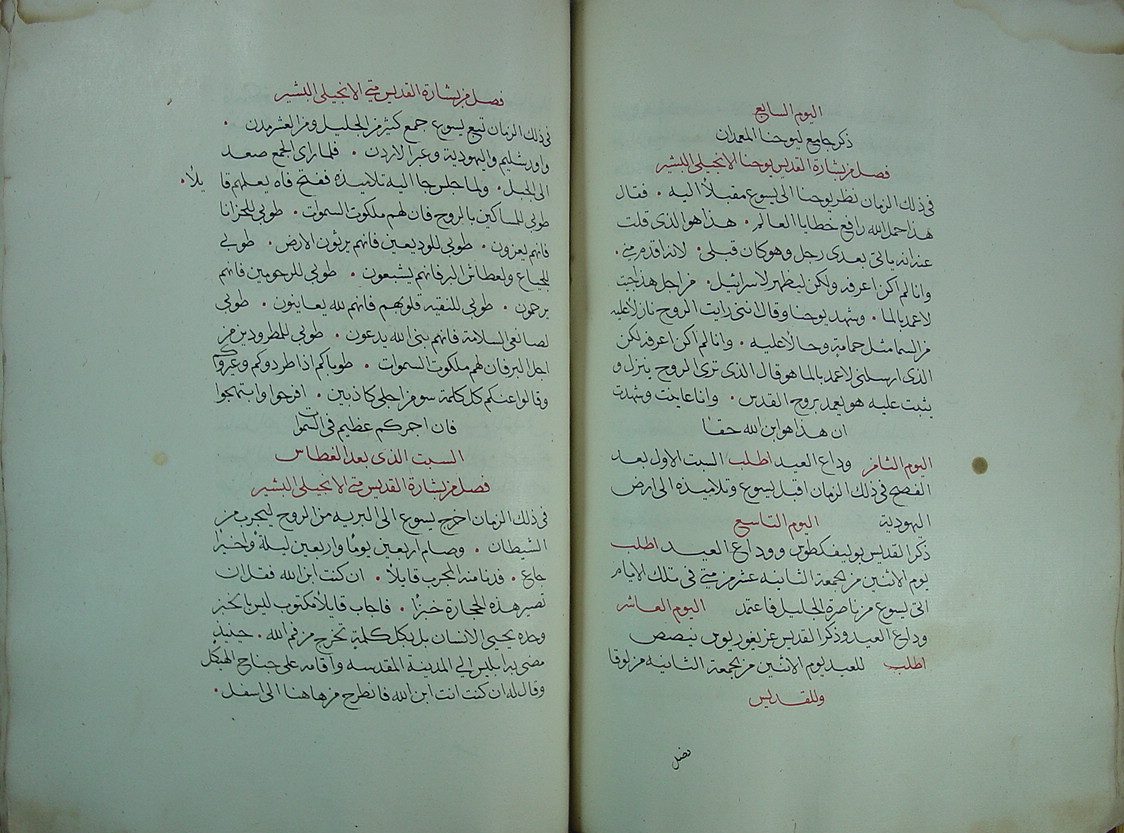 اليوم السابع
ذكر جامع ليوحنا المعمدان
فصل من بشارة القديس يوحنا الانجيلي البشير
في ذلك الزمان نظر يوحنا الى يسوع مقبلاً اليه • فقال
هذا حمل الله رافع خطايا العالم • هذا هو الذي قلت
عنه انه ياتي بعدي رجل وهو كان قبلي • لانه اقدم مني •
وانا لم اكن اعرفه ولكن ليظهر لاسرائيل • من اجل هذا جيت
لاعمد بالما • وشهد يوحنا وقال انني رايت الروح نازلا عليه
من السما مثل حمامة وحالا عليه • وانا لم اكن اعرفه لكن
الذي ارسلني لاعمد بالما هو قال الذي ترى الروح ينزل و
يثبت عليه هو يعمد بروح القدس • وانا عاينت وشهدت
ان هذا هو ابن الله حقا
اليوم الثامن وداع العيد اطلب السبت الاول بعد
الفصح في ذلك الزمان اقبل يسوع وتلاميذه الى ارض
اليهودية اليوم التاسع
ذكر القديس بوليفكطوس ووداع العيد اطلب
يوم الاثنين من الجمعة الثانية عشر من متى في تلك الايام
اتى يسوع من ناصرة الجليل فاعتمد اليوم العاشر
وداع العيد وذكر القديس غريغوريوس نيصص
اطلب للعيد يوم الاثنين من الجمعة الثانية من لوقا
وللقديس
فصل
فصل من بشارة القديس متى الانجيلي البشير
في ذلك الزمان تبع يسوع جمع كثير من الجليل ومن العشر مدن •
واورشليم واليهودية وعبر الاردن • فلما راى الجمع صعد
الى الجبل • ولما جلس جا اليه تلاميذه ففتح فاه يعلمهم قايلاً •
طوبى للمساكين بالروح فان لهم ملكوت السموات • طوبى للحزانا
فانهم يعزون • طوبى للوديعين فانهم يرثون الارض • طوبى
للجياع والعطاش البر فانهم يشبعون • طوبى للرحومين فانهم
يرحمون • طوبى للنقيه قلوبهم فانهم لله يعاينون • طوبى
لصانعي السلامة فانهم بني الله يدعون • طوبى للمطرودين من
اجل البر فان لهم ملكوت السموات • طوباكم اذا طردوكم وعيروكم
وقالوا عنكم كل كلمة سو من اجلي كاذبين • افرحوا وابتهجوا
فان اجركم عظيم في السموات
السبت الذي بعد الغطاس
فصل من بشارة القديس متى الانجيلي البشير
في ذلك الزمان اخرج يسوع الى البريه من الروح ليجرب من
الشيطان • وصام اربعين يوما واربعين ليلة واخيرا
جاع • فدنا منه المجرب قايلاً • ان كنت ابن الله فقل ان
تصير هذه الحجارة خبزا • فاجاب قايلا مكتوب ليس بالخبز
وحده يحيى الانسان بل بكل كلمة تخرج من فم الله • حينيذ
مضى به ابليس الى المدينة المقدسه واقامه على جناح الهيكل
وقال له ان كنت انت ابن الله فانطرح من هاهنا الى اسفل •